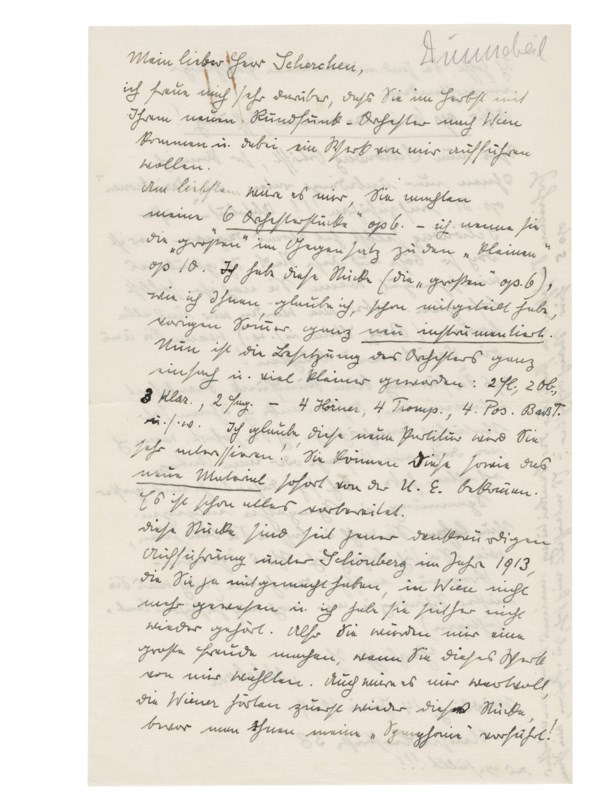 Mein lieber Herr Scherchen,
ich freue mich sehr darüber, dass Sie im Herbst mit
Ihrem neuen Rundfunk-Orchester nach Wien
kommen u. dabei ein Werk von mir aufführen
wollen.
Am liebsten wäre es mir, Sie machten
meine „6 Orchesterstücke" op 6. – ich nenne sie
die „großen" im Gegensatz zu den „kleinen"
op 10. Ich habe diese Stücke (die „großen" op. 6),
wie ich Ihnen, glaube ich, schon mitgeteilt habe,
vorigen Sommer ganz neu instrumentiert.
Nun ist die Besetzung des Orchesters ganz
einfach u. viel kleiner geworden: 2 Fl., 2 Ob.,
3 Klar., 2 Fag. – 4 Hörner, 4 Tromp., 4 Pos. BaßT.
u.s.w. Ich glaube, diese neue Partitur wird Sie
sehr interessieren! Sie können diese sowie das
neue Material sofort von der U. E. bekommen.
Es ist schon alles vorbereitet.
Diese Stücke sind seit jener denkwürdigen
Aufführung unter Schönberg im Jahre 1913,
die Sie ja mitgemacht haben, in Wien nicht
mehr gewesen u. ich habe sie seither nicht
wieder gehört. Also Sie würden mir eine
große Freude machen, wenn Sie dieses Werk
von mir wählten. Auch wäre es mir wertvoll,
die Wiener hörten zuerst wieder diese Stücke,
bevor man Ihnen meine „Symphonie" vorführt!